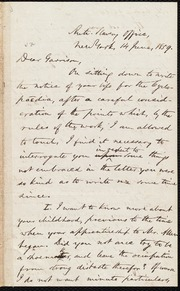 Anti-Slavery Office,
New York, 14 June, 1859.
Dear Garrison,
On sitting down to write
the notice of your life for the Cyclo-
paedia, after a careful consid-
eration of the points which, by the
rules of the work, I am allowed
to touch, I find it necessary to
interrogate you in regard to some things
not embraced in the letter you were
so kind as to write me some time
since.
I. I want to know more about
your childhood, previous to the time
when your apprenticeship to Mr. Allen
began. Did you not once try to be
a shoemaker, and leave the occupation
from doing distaste therefor? If union
I do not want minute particulars